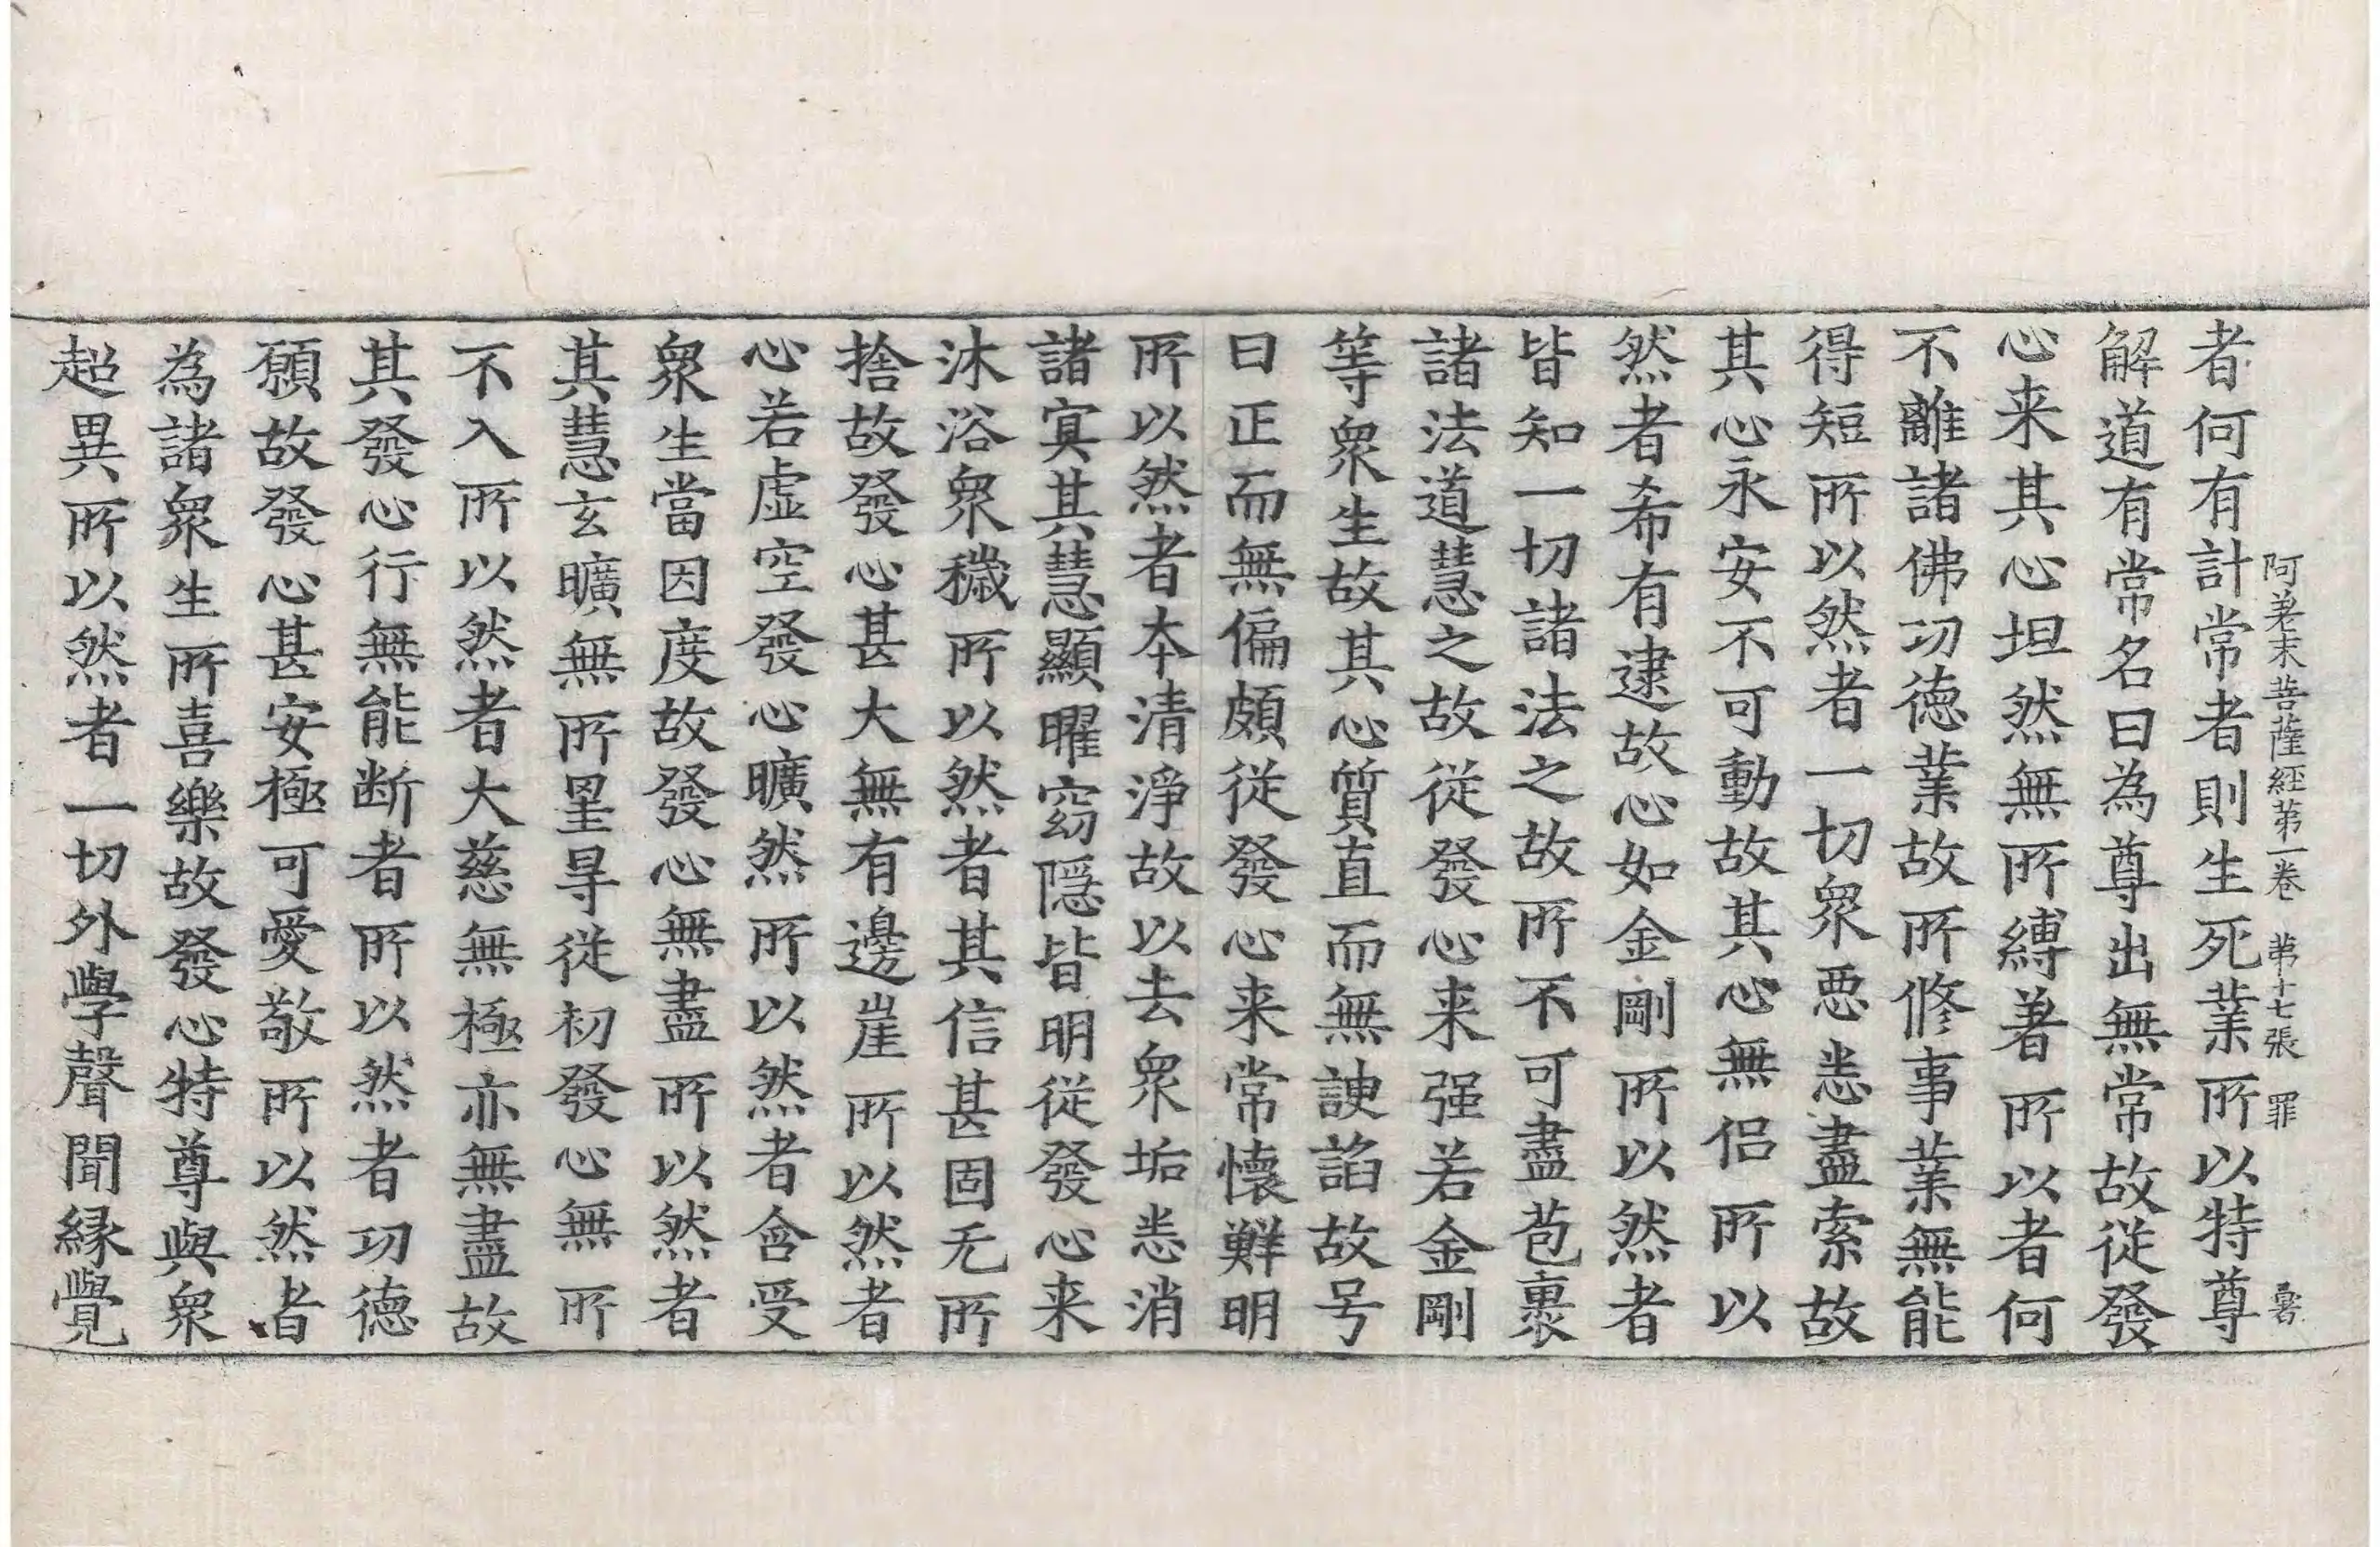 阿差末菩薩經第一卷 第十七張 罪
者何有計常者則生死業所以特尊
解道有常名曰為尊出無常故從發
心来其心坦然無所縛著所以者何
不離諸佛功德業故所修事業無能
得短所以然者一切衆惡悉盡索故
其心永安不可動故其心無侣所以
然者希有逮故心如金剛所以然者
皆知一切諸法之故所不可盡苞裹
諸法道慧之故從發心来强若金剛
等衆生故其心質直而無諛諂故号
曰正而無偏頗從發心来常懷鮮明
所以然者本清淨故以去衆垢悉消
諸冥其慧顯曜窈隱皆明從發心来
沐浴衆穢所以然者其信甚固无所
捨故發心甚大無有邊崖所以然者
心若虚空發心曠然所以然者含受
衆生當因度故發心無盡所以然者
其慧玄曠無所罣㝵從初發心無所
不入所以然者大慈無極亦無盡故
其發心行無能断者所以然者功德
願故發心甚安極可愛敬所以然者
為諸衆生所喜樂故發心特尊與衆
超異所以然者一切外學聲聞緣覺